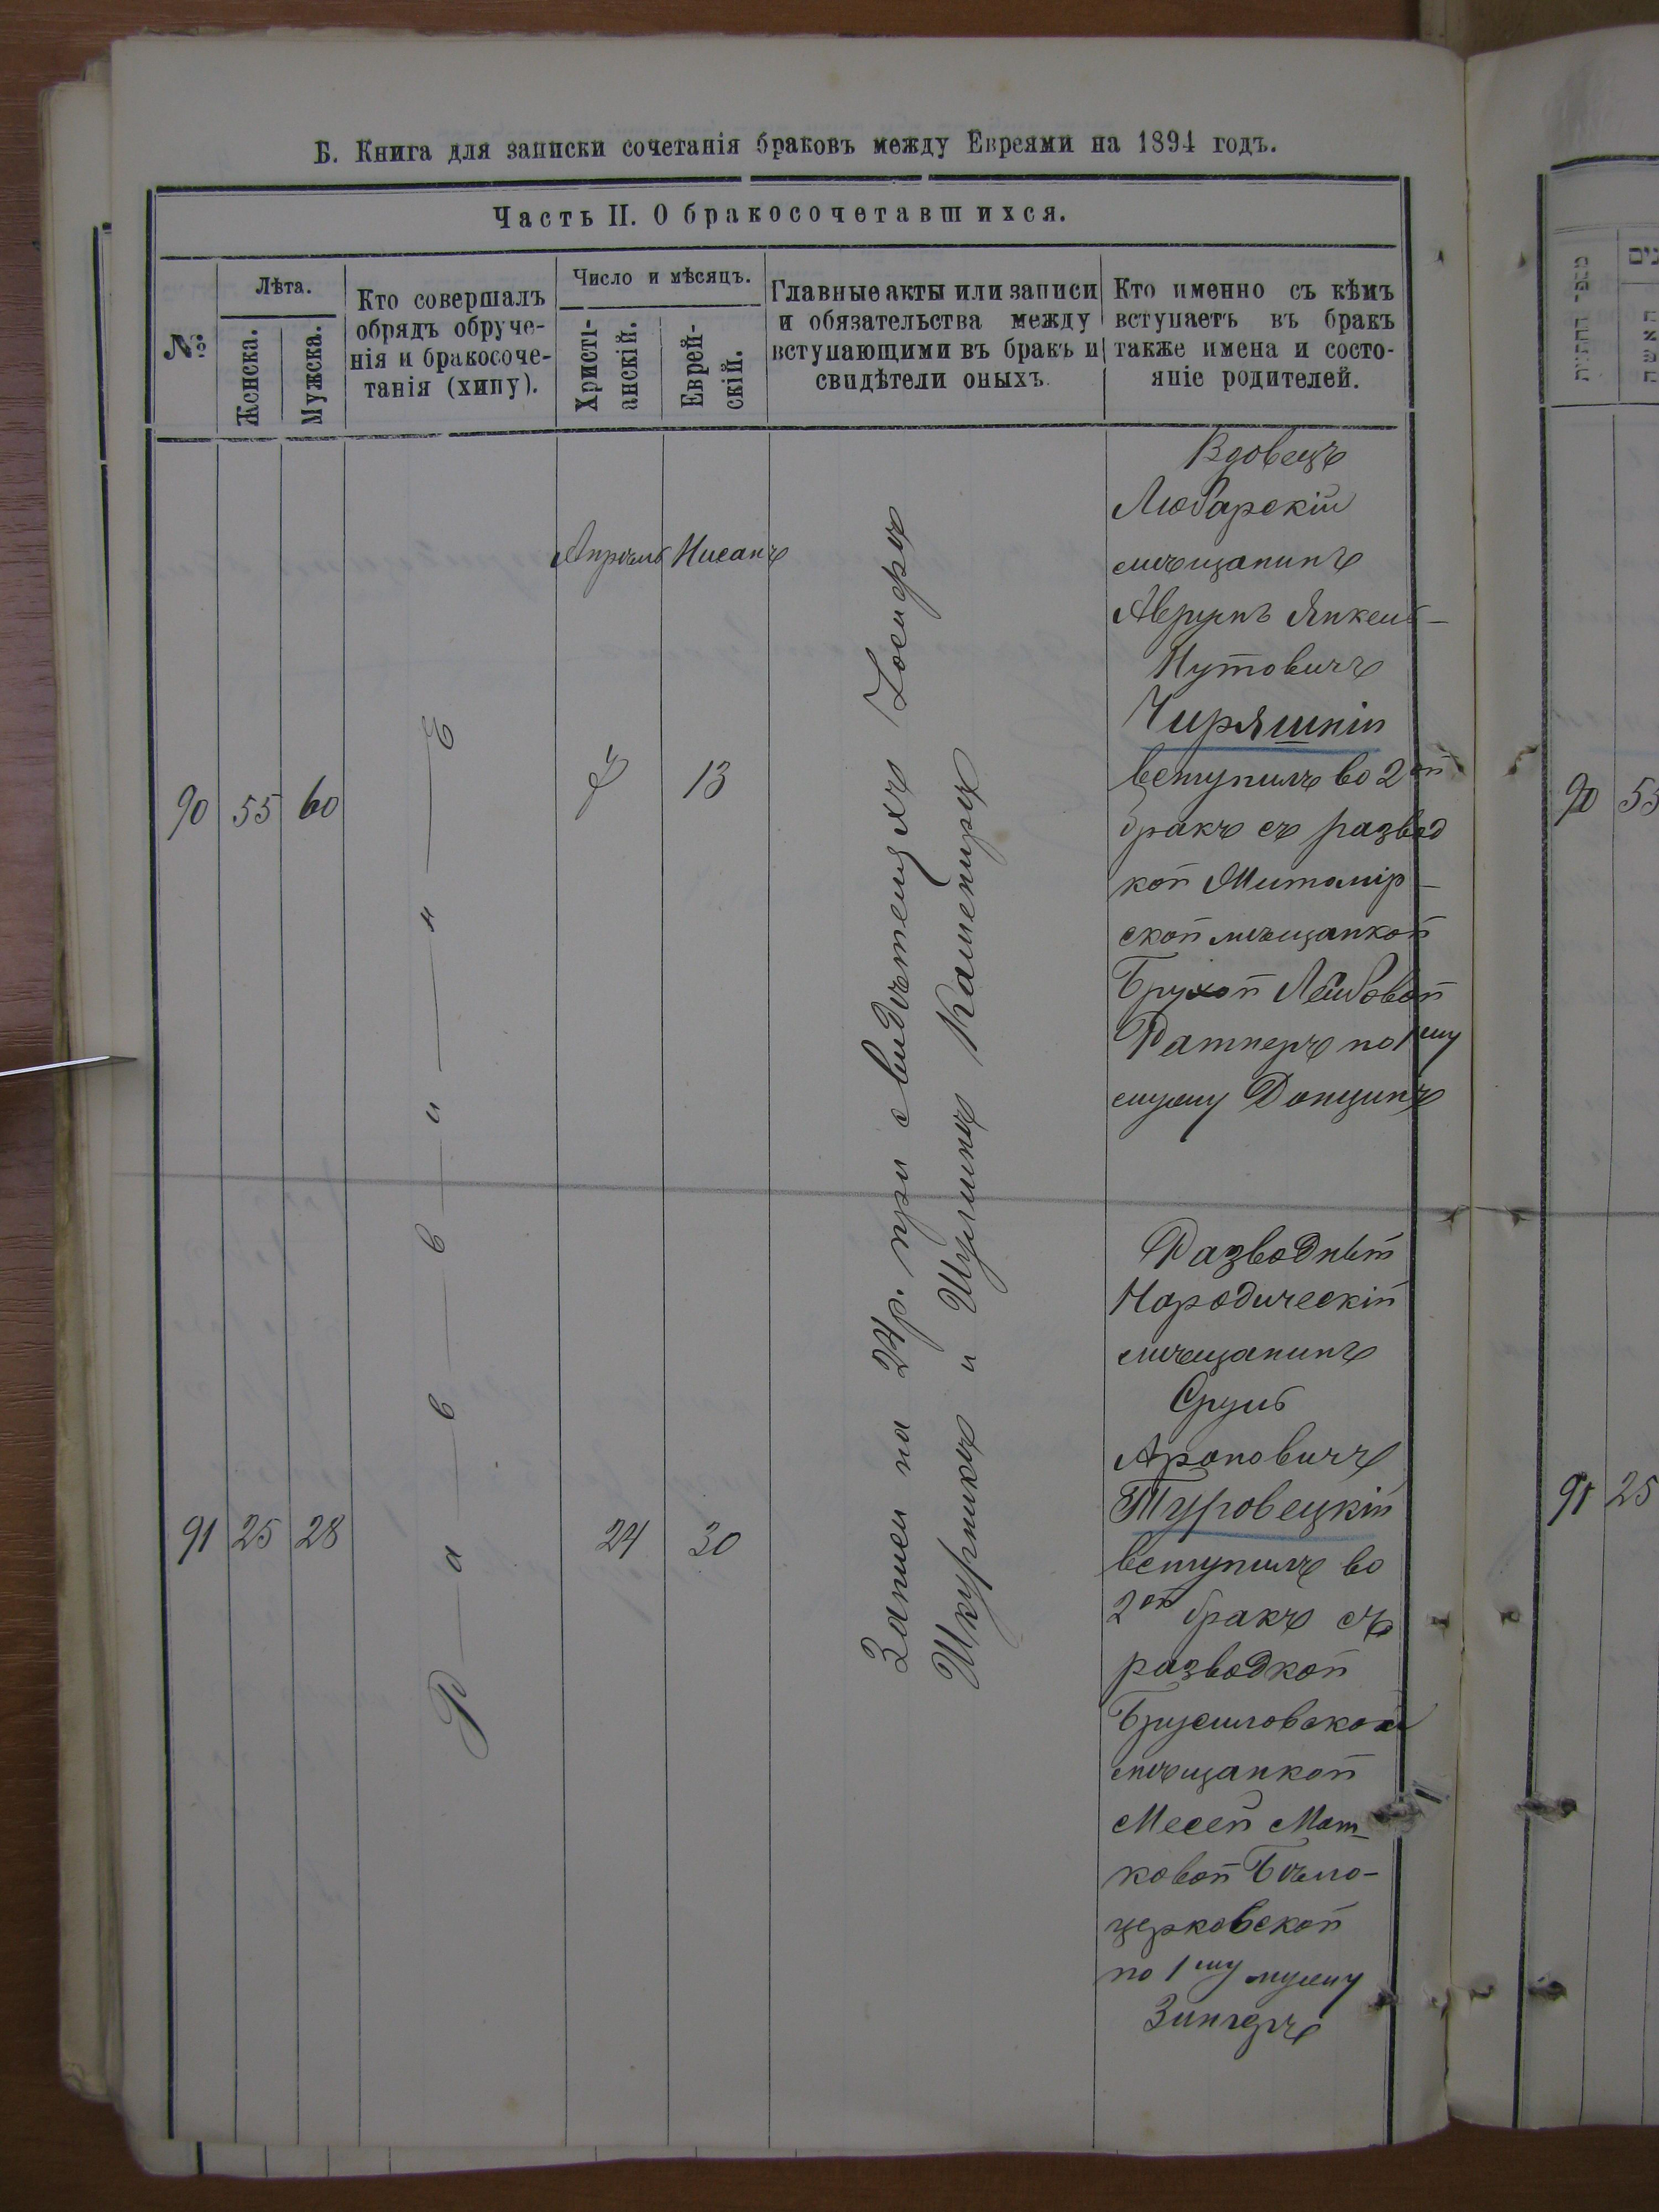 Б. Книга для записки сочетанія браковъ между Евреями на 1894 годъ.
Часть II. О бракосочетавшихся.
№
Лѣта.
Женска.
Мужска.
Кто совершалъ
обрядъ обруче-
нія и бракосоче-
танія (хипу).
Число и мѣсяцъ.
Христі-
анскій.
Еврей-
скій.
Главные акты или записи
и обязательства между
вступающими въ бракъ и
свидѣтели оныхъ.
Кто именно съ кѣмъ
вступаетъ въ бракъ
также имена и состо-
яніе родителей.
90
55
60
Р а в в и н Е
Апрѣль
Нисанъ
7
13
Записи на 24 р. при свидѣтеляхъ Іосифѣ
Шкурникѣ и Шулимѣ Каменирѣ
Вдовецъ
Любарскій
мѣщанинъ
Аврумъ Янкель-
Нутовичъ
Чиряшній
вступилъ во 2ой
бракъ съ развод
кой Житомір-
ской мѣщанкой
Брухой Лейбовой
Ратнеръ по 1му
мужу Донцинъ
91
25
28
24
30
Разводный
Народическій
мѣщанинъ
Сруль
Ароновичъ
Туровецкій
вступилъ во
2ой бракъ съ
разводкой
Брусиловской
мѣщанкой
Месей Мот-
ковой Бѣло-
церковской
по 1му мужу
Зингеръ
מספר החתונה
האשה
90
55
91
25